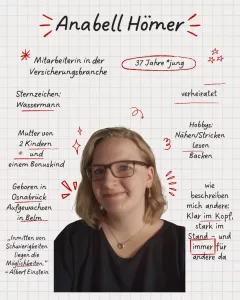 Anabell Hömer
Mitarbeiterin in der
Versicherungsbranche
37 Jahre *jung
Sternzeichen:
Wassermann
verheiratet
Mutter von
2 Kindern
* und
einem Bonuskind
Hobbys:
Nähen/Stricken
Lesen
Backen
Geboren in
Osnabrück
Aufgewachsen
in Belm
"Inmitten von
Schwierigkeiten
liegen die
Möglichkeiten."
- Albert Einstein
wie
beschreiben
mich andere:
Klar im Kopf,
stark im
Stand - und
immer für
andere da